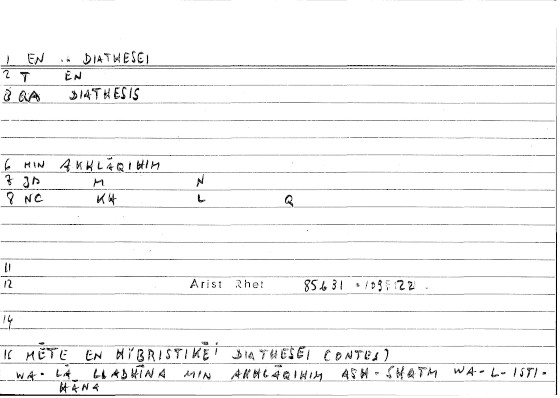 1 EN .. DIATHESEI
2 T EN
3 QA DIATHESIS
6 MIN AKHLĀQIHIM
7 JA M N
8 NC KH L Q
11
12 Arist Rhet 85631 = 109F:22.
14
16 MĒTE EN HYBRISTIKĒI DIATHESEI (ONTES)
WA-LĀ LLADHĪNA MIN AKHLĀQIHIM ASH-SHATM WA-L-ISTI-
HĀNA